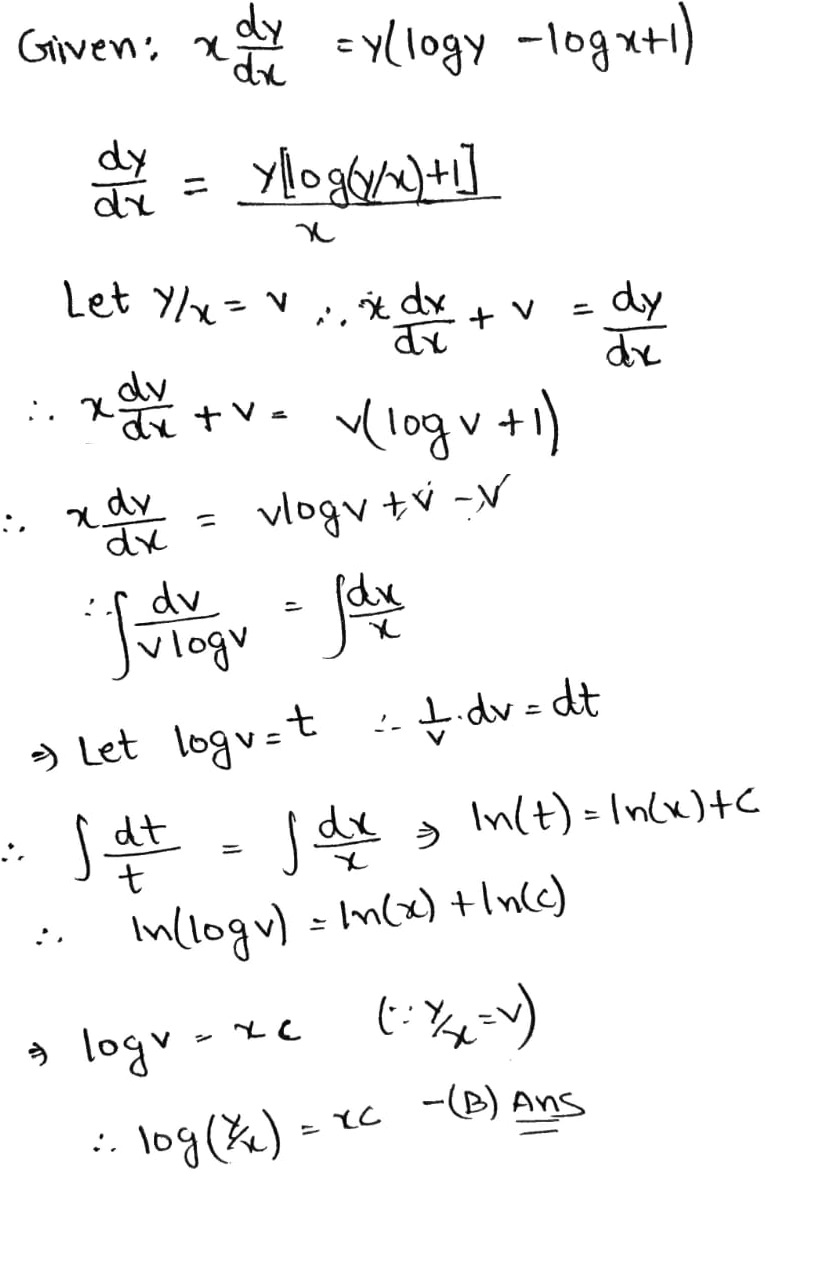 Given: x dy/dx = y(logy - logx+1)
dy/dx = y[log(y/x)+1]/x
Let y/x = v ∴ x dv/dx + v = dy/dx
∴ x dv/dx + v = v(logv+1)
∴ x dv/dx = vlogv + v - v
∴ ∫ dv/vlogv = ∫ dx/x
⇒ Let logv = t ∴ 1/v . dv = dt
∴ ∫ dt/t = ∫ dx/x ⇒ ln(t) = ln(x)+C
∴ ln(logv) = ln(x) + ln(c)
⇒ logv = xc (∵ y/x = v)
∴ log(y/x) = xc -(B) Ans